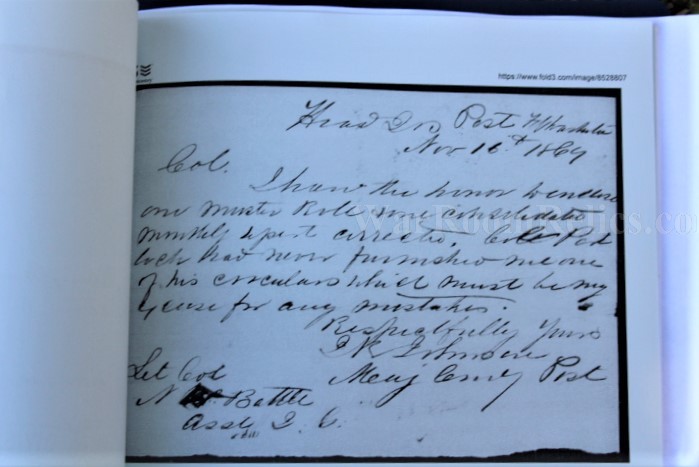 https://www.fold3.com/image/8528807
Head Qrs Post
Nov 16th 1864
Col.
I have the honor to enclose
one Muster Roll & one consolidated
monthly report corrected. Col
had never furnished me one
of his circulars which must be my
excuse for any mistakes.
Respectfully Yours
Johnson
Let Col
Maj Comg Post
N Battle
Asst
WarRoomRelics.com